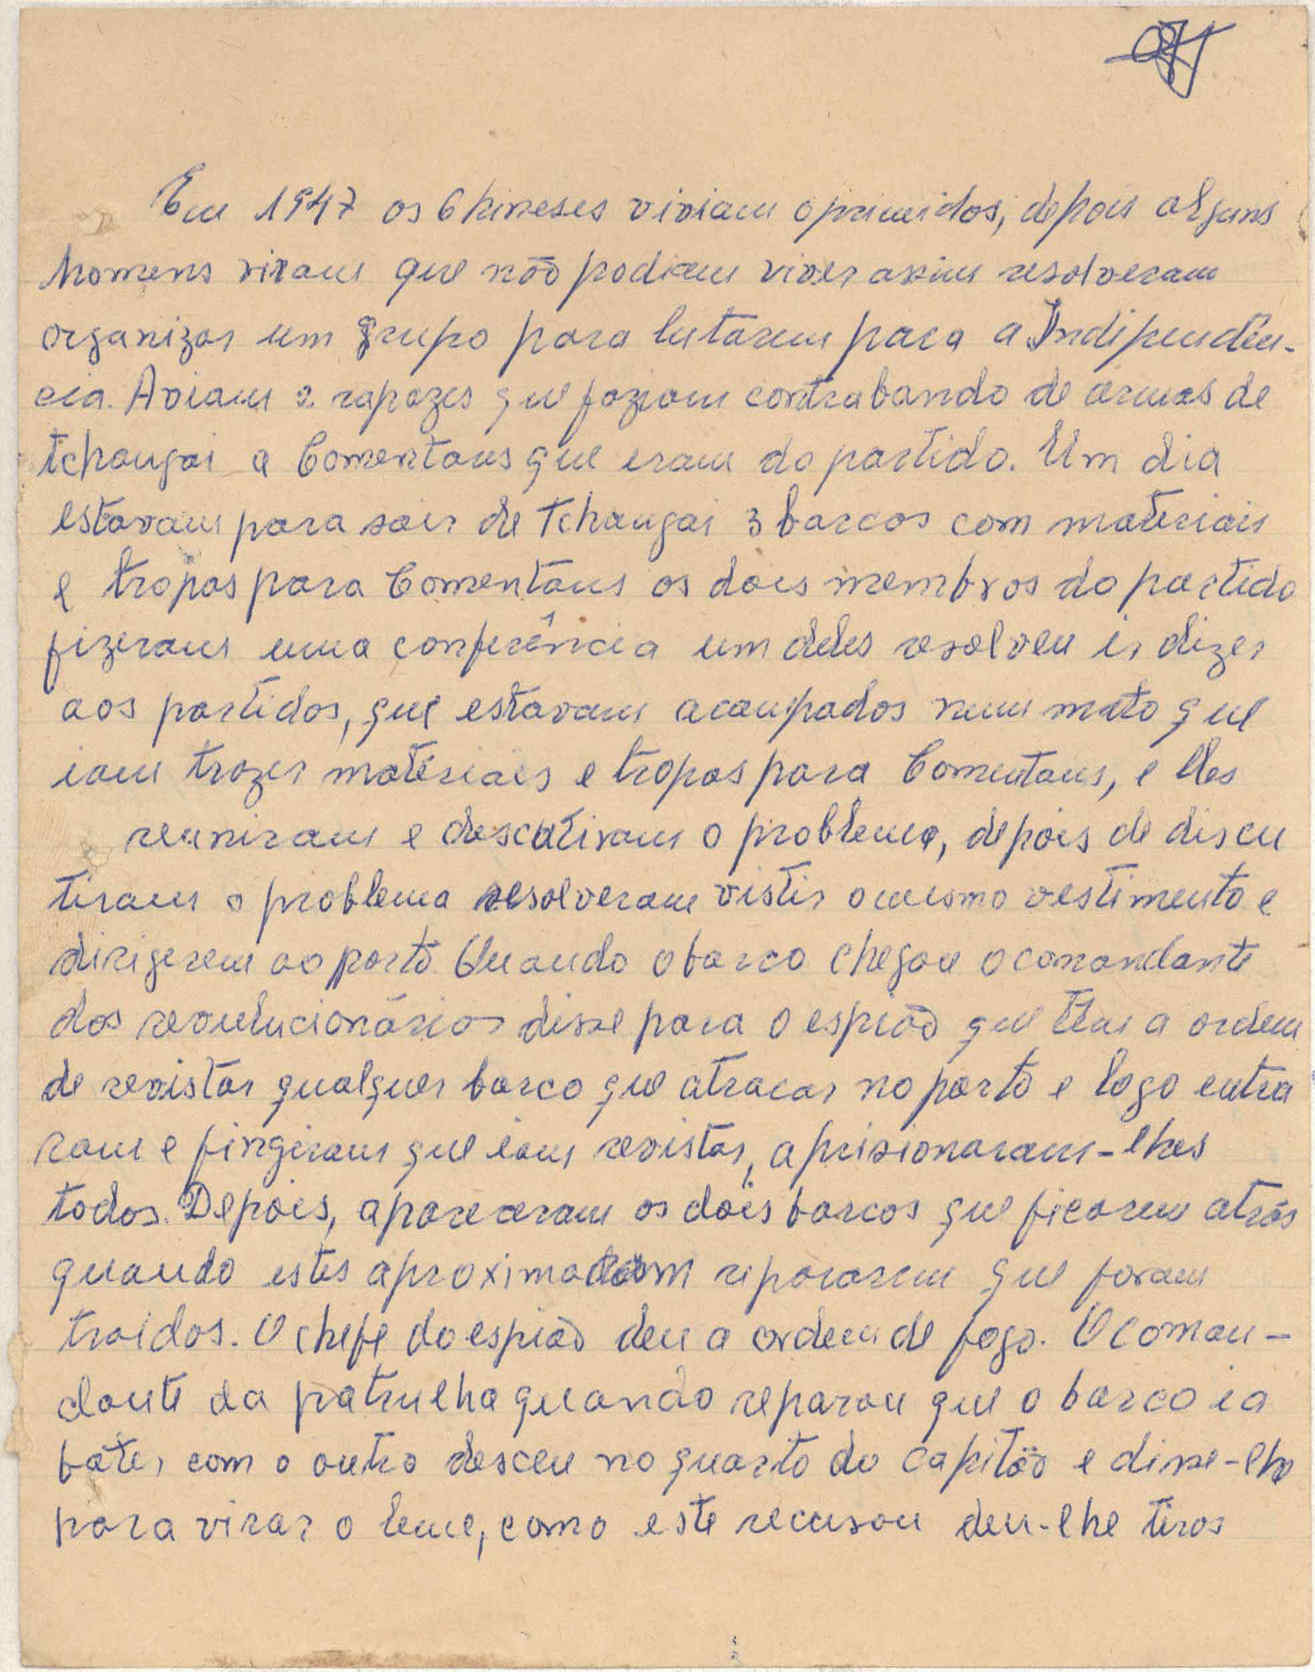 Em 1947 os Chineses viviam oprimidos, depois alguns
homens viram que não podiam viver assim resolveram
organizar um grupo para lutarem para a Indipendên-
cia. Aviam 2 rapazes que faziam contrabando de armas de
tchangai a Comentans que eram do partido. Um dia
estavam para sair de Tchangai 3 barcos com materiais
e tropas para Comentans os dois membros do partido
fizeram uma conferência um deles resolveu ir dizer
aos partidos, que estavam acampados num mato que
iam trazer matériais e tropas para Comentans, e eles
reuniram e descutiram o problema, depois de discu
tiram o problema resolveram vistir o mesmo vestimento e
dirigerem ao porto. Quando o barco chegou o comandante
dos revulucionários disse para o espião que tem a ordem
de revistar qualquer barco que atracar no porto e logo entra
ram e fingiram que iam revistar, aprisionaram-lhes
todos. Depois, apareceram os dois barcos que ficarem atrás
quando estes aproximaram repararem que foram
traidos. O chefe do espião deu a ordem de fogo. O coman-
dante da patrulha quando reparou que o barco ia
bater com o outro desceu no quarto do capitão e disse-lhe
para virar o leme, como este recusou deu-lhe tiros